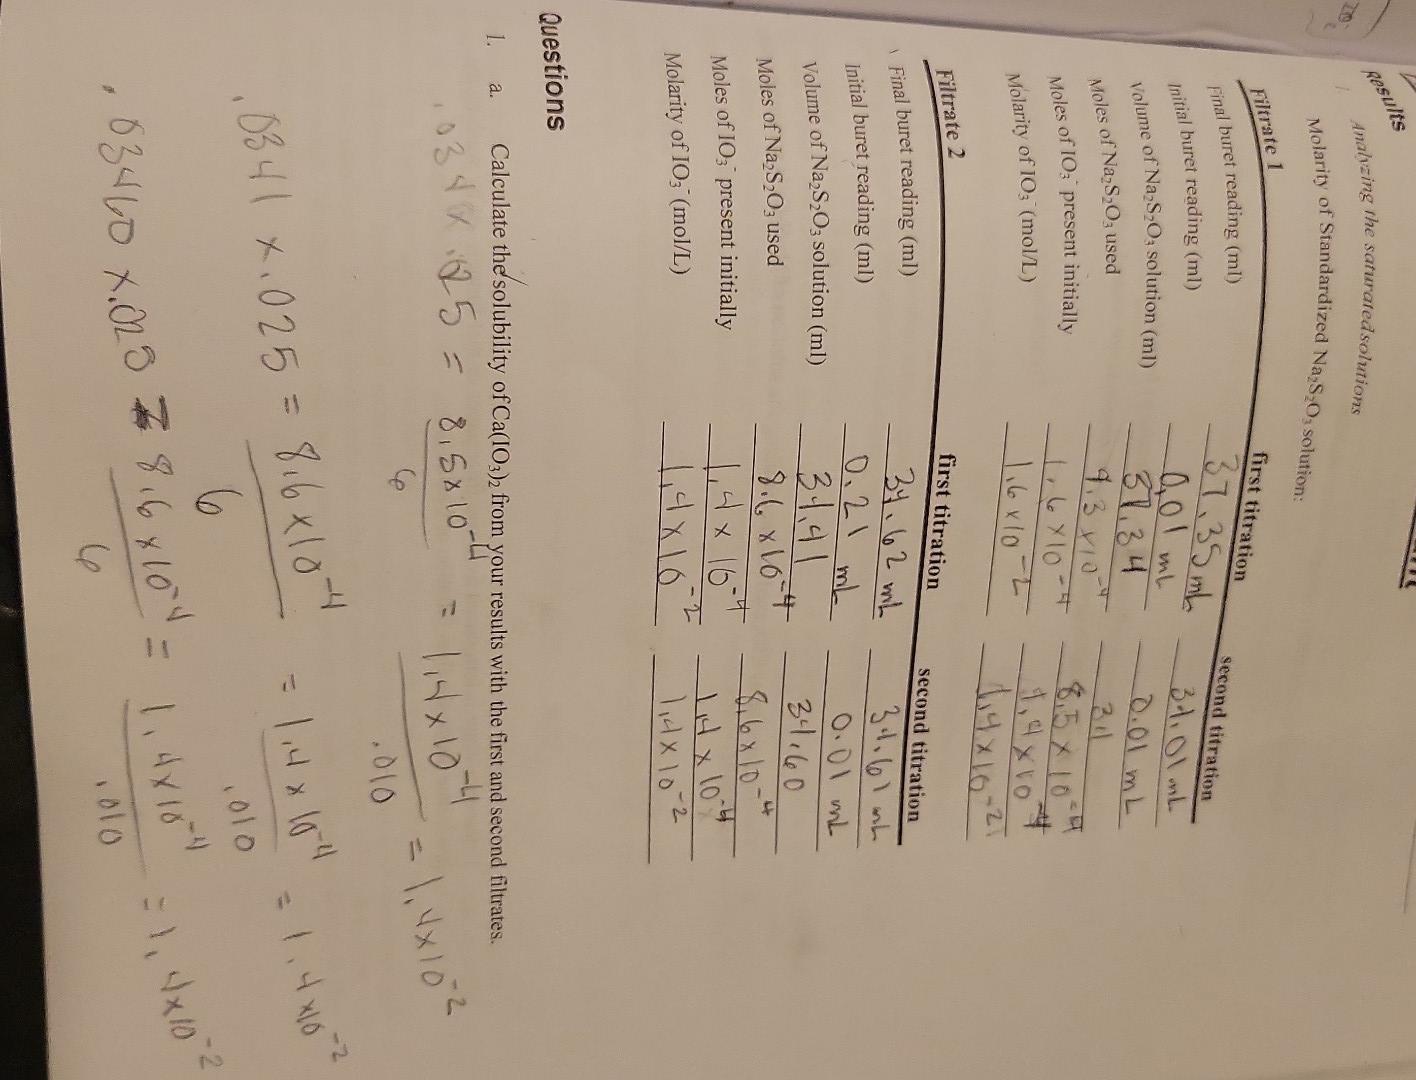 Results
1. Analyzing the saturated solutions
Molarity of Standardized Na₂S₂O₃ solution:
Filtrate 1 first titration second titration
Final buret reading (ml) 37.35 mL 34.01 mL
Initial buret reading (ml) 0.01 mL 0.01 mL
Volume of Na₂S₂O₃ solution (ml) 37.34 34
Moles of Na₂S₂O₃ used 9.3 x10⁻⁴ 8.5 x 10⁻⁴
Moles of IO₃⁻ present initially 1.6 x10⁻⁴ 1.4 x10⁻⁴
Molarity of IO₃⁻ (mol/L) 1.6 x10⁻² 1.4 x 10⁻²
Filtrate 2 first titration second titration
Final buret reading (ml) 34.62 mL 34.61 mL
Initial buret reading (ml) 0.21 mL 0.01 mL
Volume of Na₂S₂O₃ solution (ml) 34.41 34.60
Moles of Na₂S₂O₃ used 8.6 x10⁻⁴ 8.6 x10⁻⁴
Moles of IO₃⁻ present initially 1.4 x 10⁻⁴ 1.4 x 10⁻⁴
Molarity of IO₃⁻ (mol/L) 1.4 x 10⁻² 1.4 x 10⁻²
Questions
1. a. Calculate the solubility of Ca(IO₃)₂ from your results with the first and second filtrates.
.034 x .025 = 8.5 x 10⁻⁴ = 1.4 x 10⁻⁴ = 1.4 x 10⁻²
6 .010
.0341 x .025 = 8.6 x 10⁻⁴ = 1.4 x 10⁻⁴ = 1.4 x10⁻²
6 .010
.03460 x .025 = 8.6 x10⁻⁴ = 1.4 x10⁻⁴ = 1.4 x10⁻²
6 .010